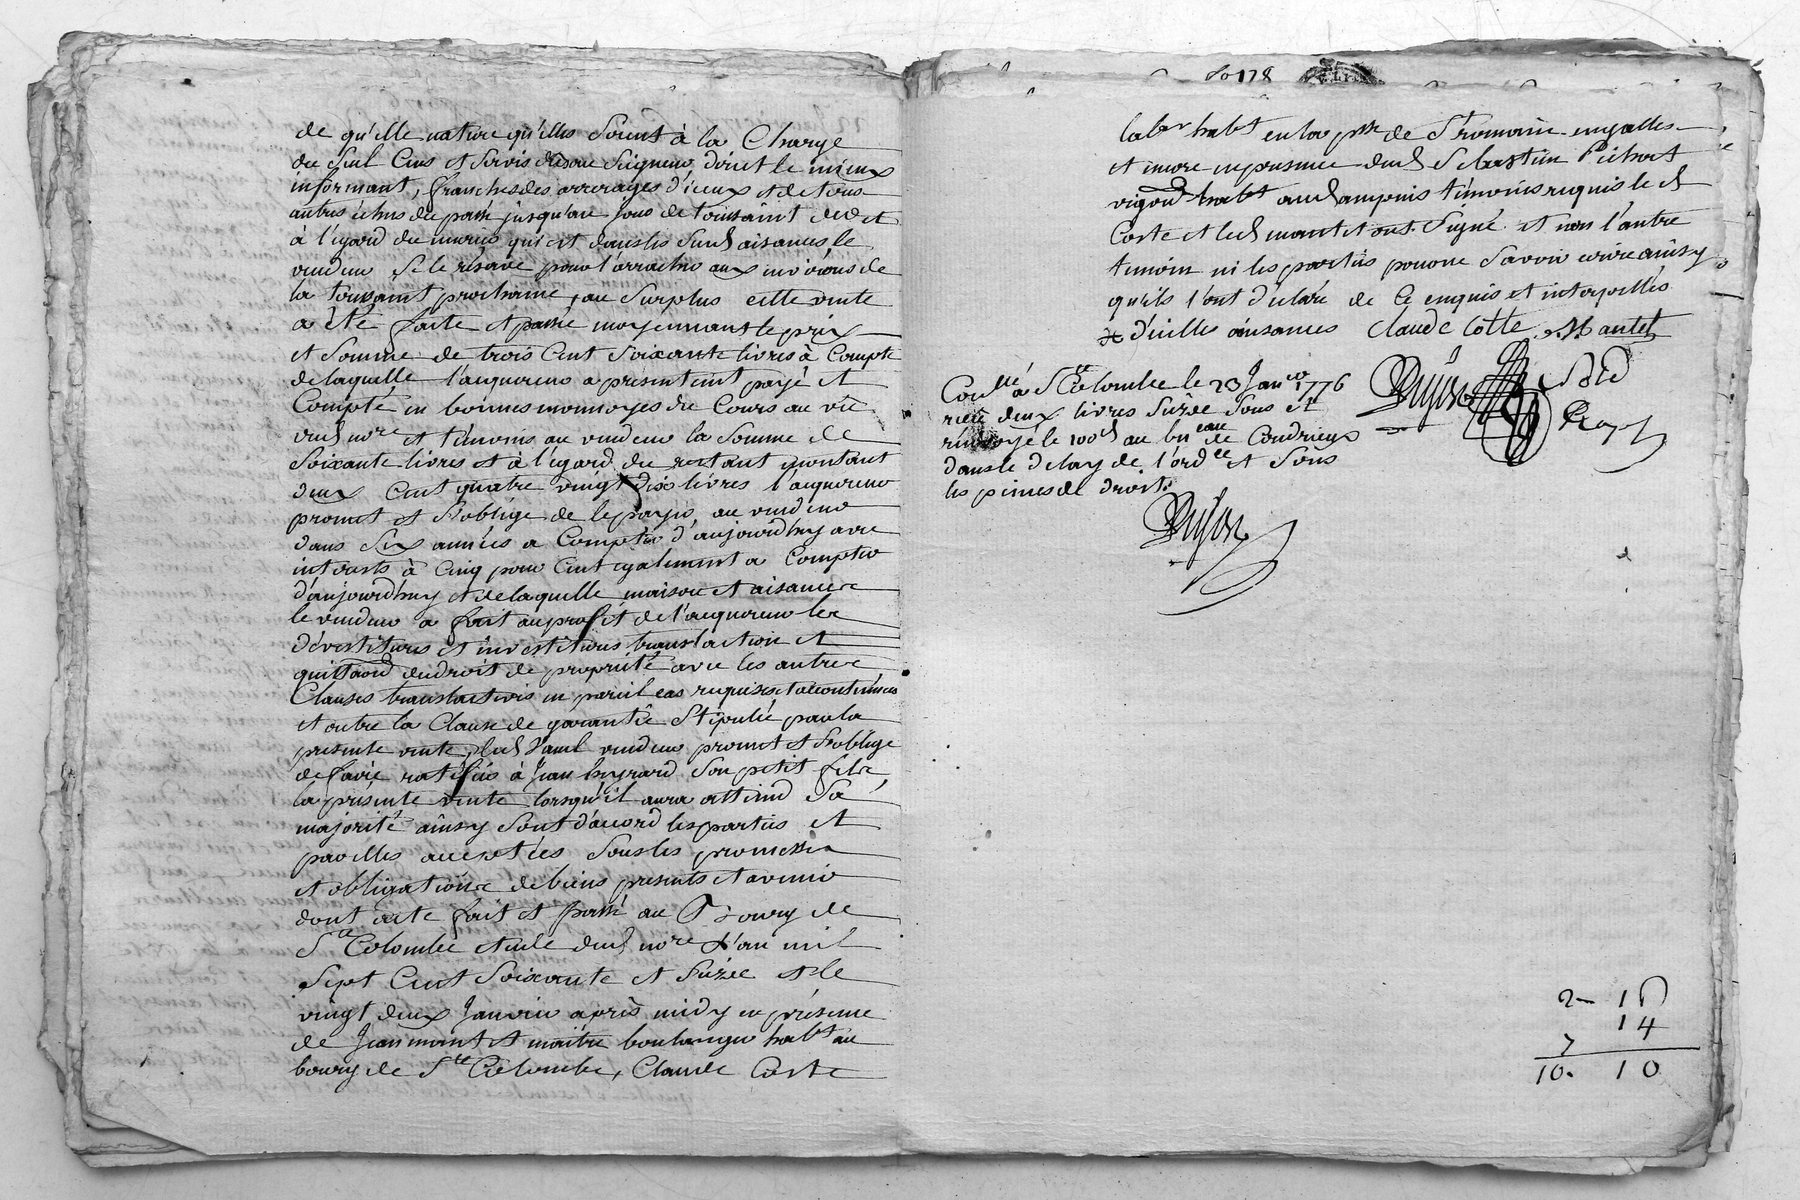 de qu'elle nature qu'elles soient à la charge
du seul Cens et servis du au seigneur, dont le mieux
informant, franches des arrerages d'iceux et de tous
autres échus du passé jusqu'au jour de toussaint der et
à l'égard du murier qui est dans les susd aisances le
vendeur se le réserve pour l'arracher aux environs de
la toussaint prochaine, au surplus cette vente
a été faite et passée moyennant le prix
et somme de trois Cent soixante livres à Compte
de laquelle l'acquereur a presentemt payé et
Compté en bonnes monnoyes du Cours au vu
dud nore et témoins au vendeur la somme de
soixante livres et à l'égard du restant montant
deux Cent quatre vingt dix livres l'acquereur
promet et s'oblige de le payer au vendeur
dans six années a Compter d'aujourdhuy avec
interests à Cinq pour Cent egalement a Compter
d'aujourdhuy et de laquelle maison et aisances
le vendeur a fait au profit de l'acquereur les
dévestitures et investitures translaction et
quittance du droit de proprieté avec les autres
Clauses translatives en pareil cas requises et accoutumées
et outre la Clause de garantie stipulée par la
presente vente, led vendeur promet et s'oblige
de faire ratifier à Jean son petit fils
la présente vente lorsqu'il aura atteint sa
majorité ainsy sont d'accord les parties et
par elles acceptées sous les promesses
et obligations de biens presents et avenir
dont acte fait et passé au Bourg de
Ste Colombe etude dud nore l'an mil
sept Cent soixante et seize et le
vingt deux Janvier après midy en présence
de Jean mantet maitre boulanger habt au
bourg de Ste Colombe, Claude Coste
fo 178
labr habt en la psse de St romain en galles
et encore en presence de Sebastien Pichat
vigon habt aud ampuis témoins requis led
Coste et led mantet ont signé et non l'autre
temoin ni les parties pour ne savoir ecrire ainsy
qu'ils l'ont déclaré de Ce enquis et interpellés
d'icelles aisances Claude Cotte Mantet
Conllé à Ste Colombe le 23 Janer 1776
reçu deux livres seize sous et
renvoyé le 100e au bureau de Condrieux
dans le delay de l'ordce et sous
les peines de droit.
Dujast
Dujast
2 - 15
14
7
10. 10